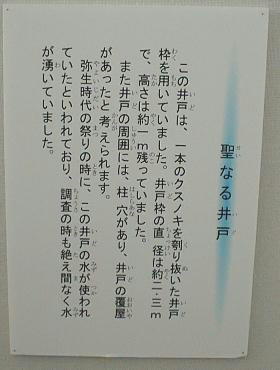 聖なる井戸
この井戸は、一本のクスノキを刳り抜いた井戸
枠を用いていました。井戸枠の直径は約二・三m
で、高さは約一m残っていました。
また井戸の周囲には、柱穴があり、井戸の覆屋
があったと考えられます。
弥生時代の祭りの時に、この井戸の水が使われ
ていたといわれており、調査の時も絶え間なく水
が湧いていました。